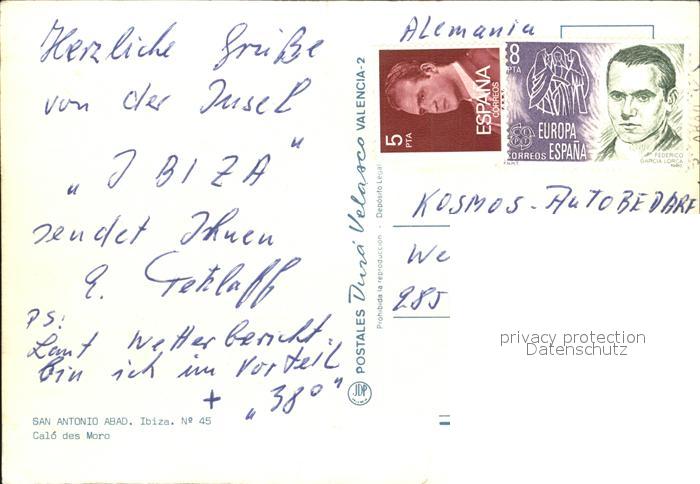 Herzliche Grüße
von der Insel
„ IBIZA "
sendet Ihnen
E. Tetzlaff
PS:
Laut Wetterbericht
bin ich im Vorteil
+ „38°"
SAN ANTONIO ABAD. Ibiza. Nº 45
Caló des Moro
POSTALES Durá Velasco VALENCIA-2
Prohibida la reproducción - Depósito Legal
JDP
Alemania
5 PTA
ESPAÑA
CORREOS
8 PTA
EUROPA
CORREOS ESPAÑA
F.N.M.T.
FEDERICO
GARCIA LORCA
1980
KOSMOS-AUTOBEDARF
We
285
privacy protection
Datenschutz